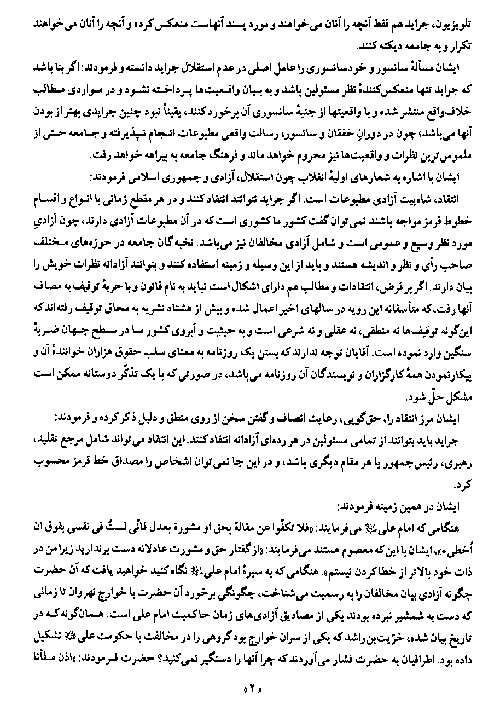 تلویزیون، جراید هم فقط آنچه را آنان می‌خواهند و مورد پسند آنهاست منعکس کرده و آنچه را آنان می‌خواهند
تکرار و به جامعه دیکته کنند.
ایشان مسألهٔ سانسور و خودسانسوری را عامل اصلی در عدم استقلال جراید دانسته و فرمودند: اگر بنا باشد
که جراید تنها منعکس‌کنندهٔ نظر مسئولین باشد و به بیان واقعیت‌ها پرداخته نشود و در مواردی مطالب
خلاف‌واقع منتشر شده و با واقعیتها از جنبهٔ سانسوری آن برخورد کنند، یقیناً نبود چنین جرایدی بهتر از بودن
آنها می‌باشد؛ چون در دوران خفقان و سانسور، رسالت واقعی مطبوعات انجام نپذیرفته و جامعه حتی از
ملموس‌ترین نظرات و واقعیت‌ها نیز محروم خواهد ماند و فرهنگ جامعه به بیراهه خواهد رفت.
ایشان با اشاره به شعارهای اولیهٔ انقلاب چون استقلال، آزادی و جمهوری اسلامی فرمودند:
انتقاد، شاه‌بیت آزادی مطبوعات است. اگر جراید نتوانند انتقاد کنند و در هر مقطع زمانی با انواع و اقسام
خطوط قرمز مواجه باشند نمی‌توان گفت کشور ما کشوری است که در آن مطبوعات آزادی دارند، چون آزادیِ
مورد نظر وسیع و عمومی است و شامل آزادی مخالفان نیز می‌باشد. نخبه‌گان جامعه در حوزه‌های مختلف
صاحب رأی و نظر و اندیشه هستند و باید از این وسیله و زمینه استفاده کنند و بتوانند آزادانه نظرات خویش را
بیان دارند. اگر بر فرض، انتقادات و مطالب هم دارای اشکال است نباید به نام قانون و با حربهٔ توقیف به مصاف
آنها رفت، که متأسفانه این رویه در سالهای اخیر اعمال شده و بیش از هشتاد نشریه به محاق توقیف رفته‌اند که
این‌گونه توقیف‌ها نه منطقی، نه عقلی و نه شرعی است و به حیثیت و آبروی کشور ما در سطح جهان ضربهٔ
سنگین وارد نموده است. آقایان توجه ندارند که بستن یک روزنامه به معنای سلب حقوق هزاران خوانندهٔ آن و
بیکارنمودن همهٔ کارگزاران و نویسندگان آن روزنامه می‌باشد، در صورتی که با یک تذکّر دوستانه ممکن است
مشکل حل شود.
ایشان مرز انتقاد را، حق‌گویی، رعایت انصاف و گفتن سخن از روی منطق و دلیل ذکر کرده و فرمودند:
جراید باید بتوانند از تمامی مسئولین در هر رده‌ای آزادانه انتقاد کنند. این انتقاد می‌تواند شامل مرجع تقلید،
رهبری، رئیس‌جمهور یا هر مقام دیگری باشد، و در این جا نمی‌توان اشخاص را مصداق خط قرمز محسوب
کرد.
ایشان در همین زمینه فرمودند:
هنگامی که امام علی می‌فرمایند: «فلا تکفّوا عن مقالة بحق او مشورة بعدل فانّی لستُ فی نفسی بفوق ان
أخطی» ایشان با این‌که معصوم هستند می‌فرمایند: «از گفتار حق و مشورت عادلانه دست برندارید زیرا من در
ذات خود بالاتر از خطا کردن نیستم». هنگامی که به سیرهٔ امام علی نگاه کنید خواهید یافت که آن حضرت
چگونه آزادی بیان مخالفان را به رسمیت می‌شناخت، چگونگی برخورد آن حضرت با خوارج نهروان تا زمانی
که دست به شمشیر نبرده بودند یکی از مصادیق آزادی‌های زمان حاکمیت امام علی است. همان‌گونه که در
تاریخ بیان شده، خرّیت‌بن‌راشد که یکی از سران خوارج بود گروهی را در مخالفت با حکومت علی تشکیل
داده بود. اطرافیان به حضرت فشار می‌آوردند که چرا آنها را دستگیر نمی‌کنید؟ حضرت فرمودند: «اذن ملأنا
«۲»